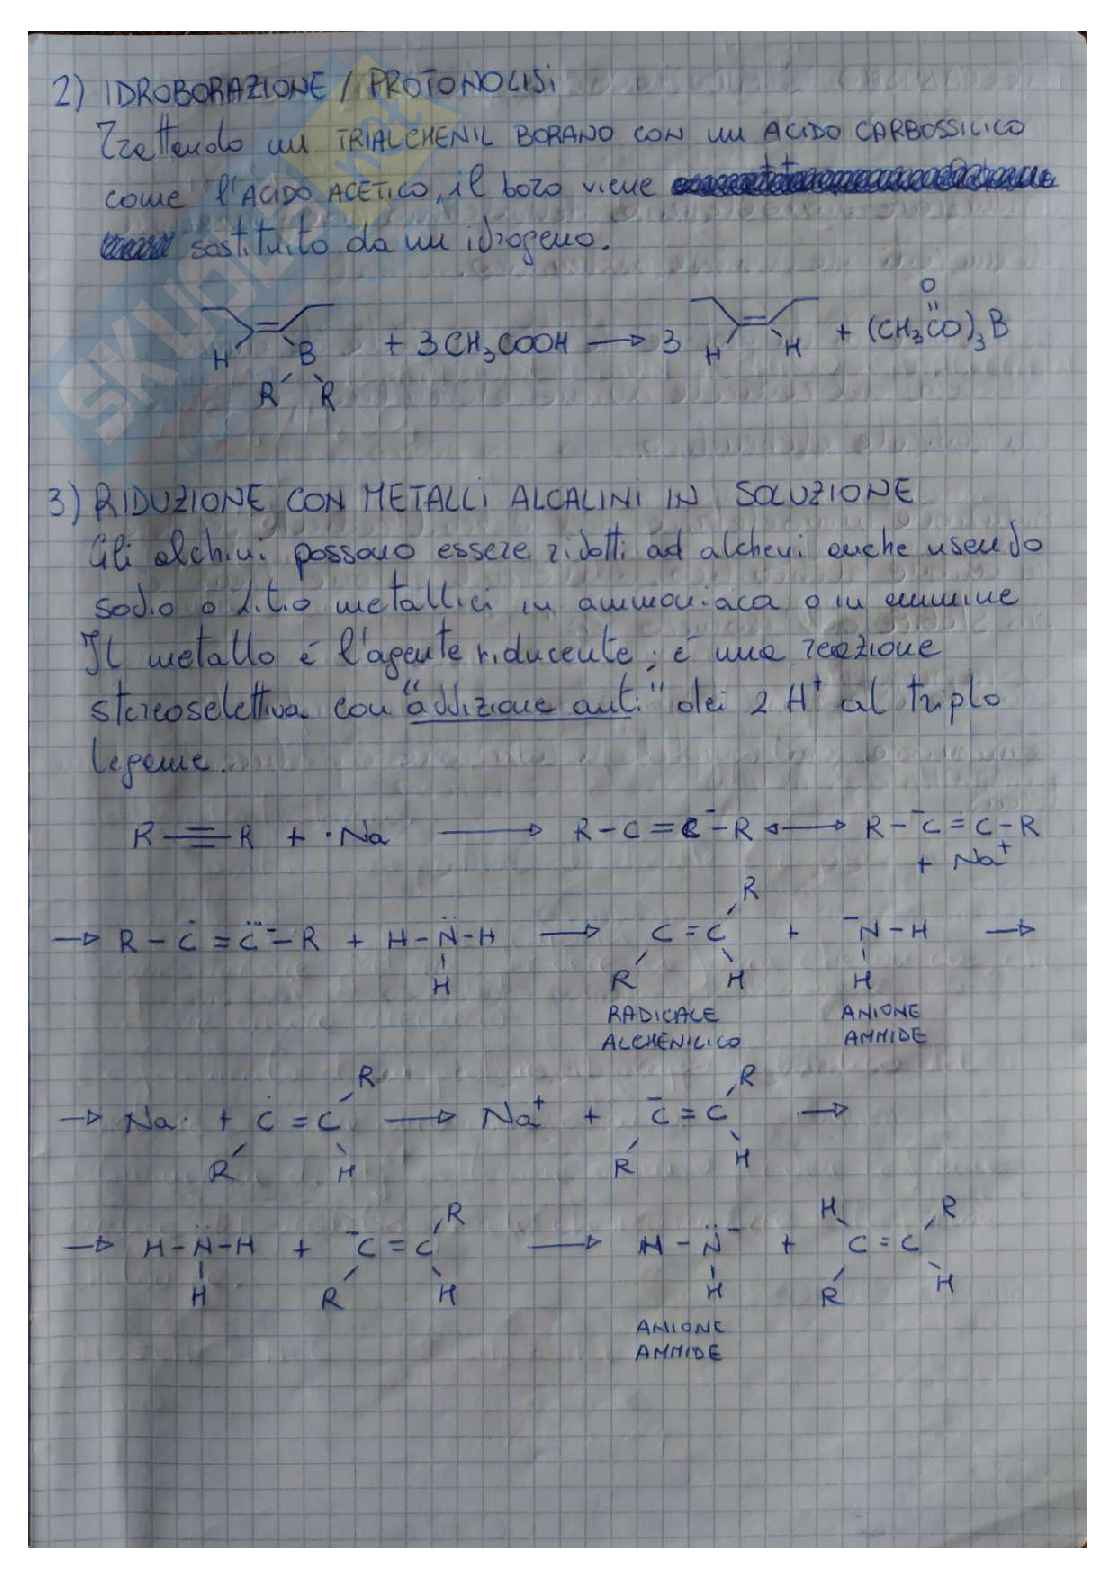 2) IDROBORAZIONE / PROTONOLISI
Trattando un TRIALCHENIL BORANO CON un ACIDO CARBOSSILICO
come l'ACIDO ACETICO, il boro viene
sostituito da un idrogeno.
H B + 3CH3COOH → 3 H H + (CH3CO)3B
O
R R
3) RIDUZIONE CON METALLI ALCALINI IN SOLUZIONE
Gli alchini possono essere ridotti ad alcheni anche usando
sodio o litio metallici in ammoniaca o in ammine
Il metallo é l'agente riducente; é una reazione
stereoselettiva con "addizione anti" dei 2 H+ al triplo
legame.
R≡R + ·Na → R-C=C⁻-R ↔ R-⁻C=C-R
+ Na+
→ R-Ċ=C̈⁻-R + H-N̈-H → C=C + ⁻N-H →
R
H R H H
RADICALE ANIONE
ALCHENILICO AMMIDE
→ Na· + Ċ=C → Na+ + ⁻C=C →
R R
R H R H
→ H-N̈-H + ⁻C=C → H-N̈⁻ + C=C
R H R
H R H H R H
ANIONE
AMMIDE
SKUOLA.net